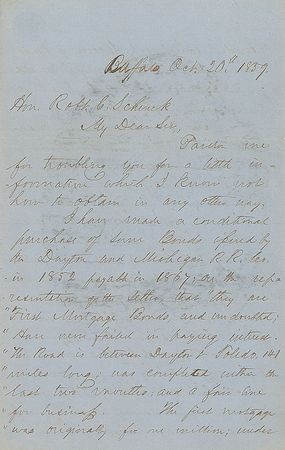 Buffalo Oct. 20th 1859.
Hon. Robt. C. Schenck
My Dear Sir,
Pardon me
for troubling you for a little in-
formation which I know not
how to obtain in any other way.
I have made a conditional
purchase of some Bonds issued by
the Dayton and Michigan R.R. Co.
in 1852 payable in 1867, on the rep-
resentation of the seller, that they are
"First Mortgage Bonds, and undoubted;
"Have never failed in paying interest.
"The Road is between Dayton & Toledo, 141
"miles long; was completed within the
"last two months; and a fair line
"for business. The first mortgage
"was originally for one million; under